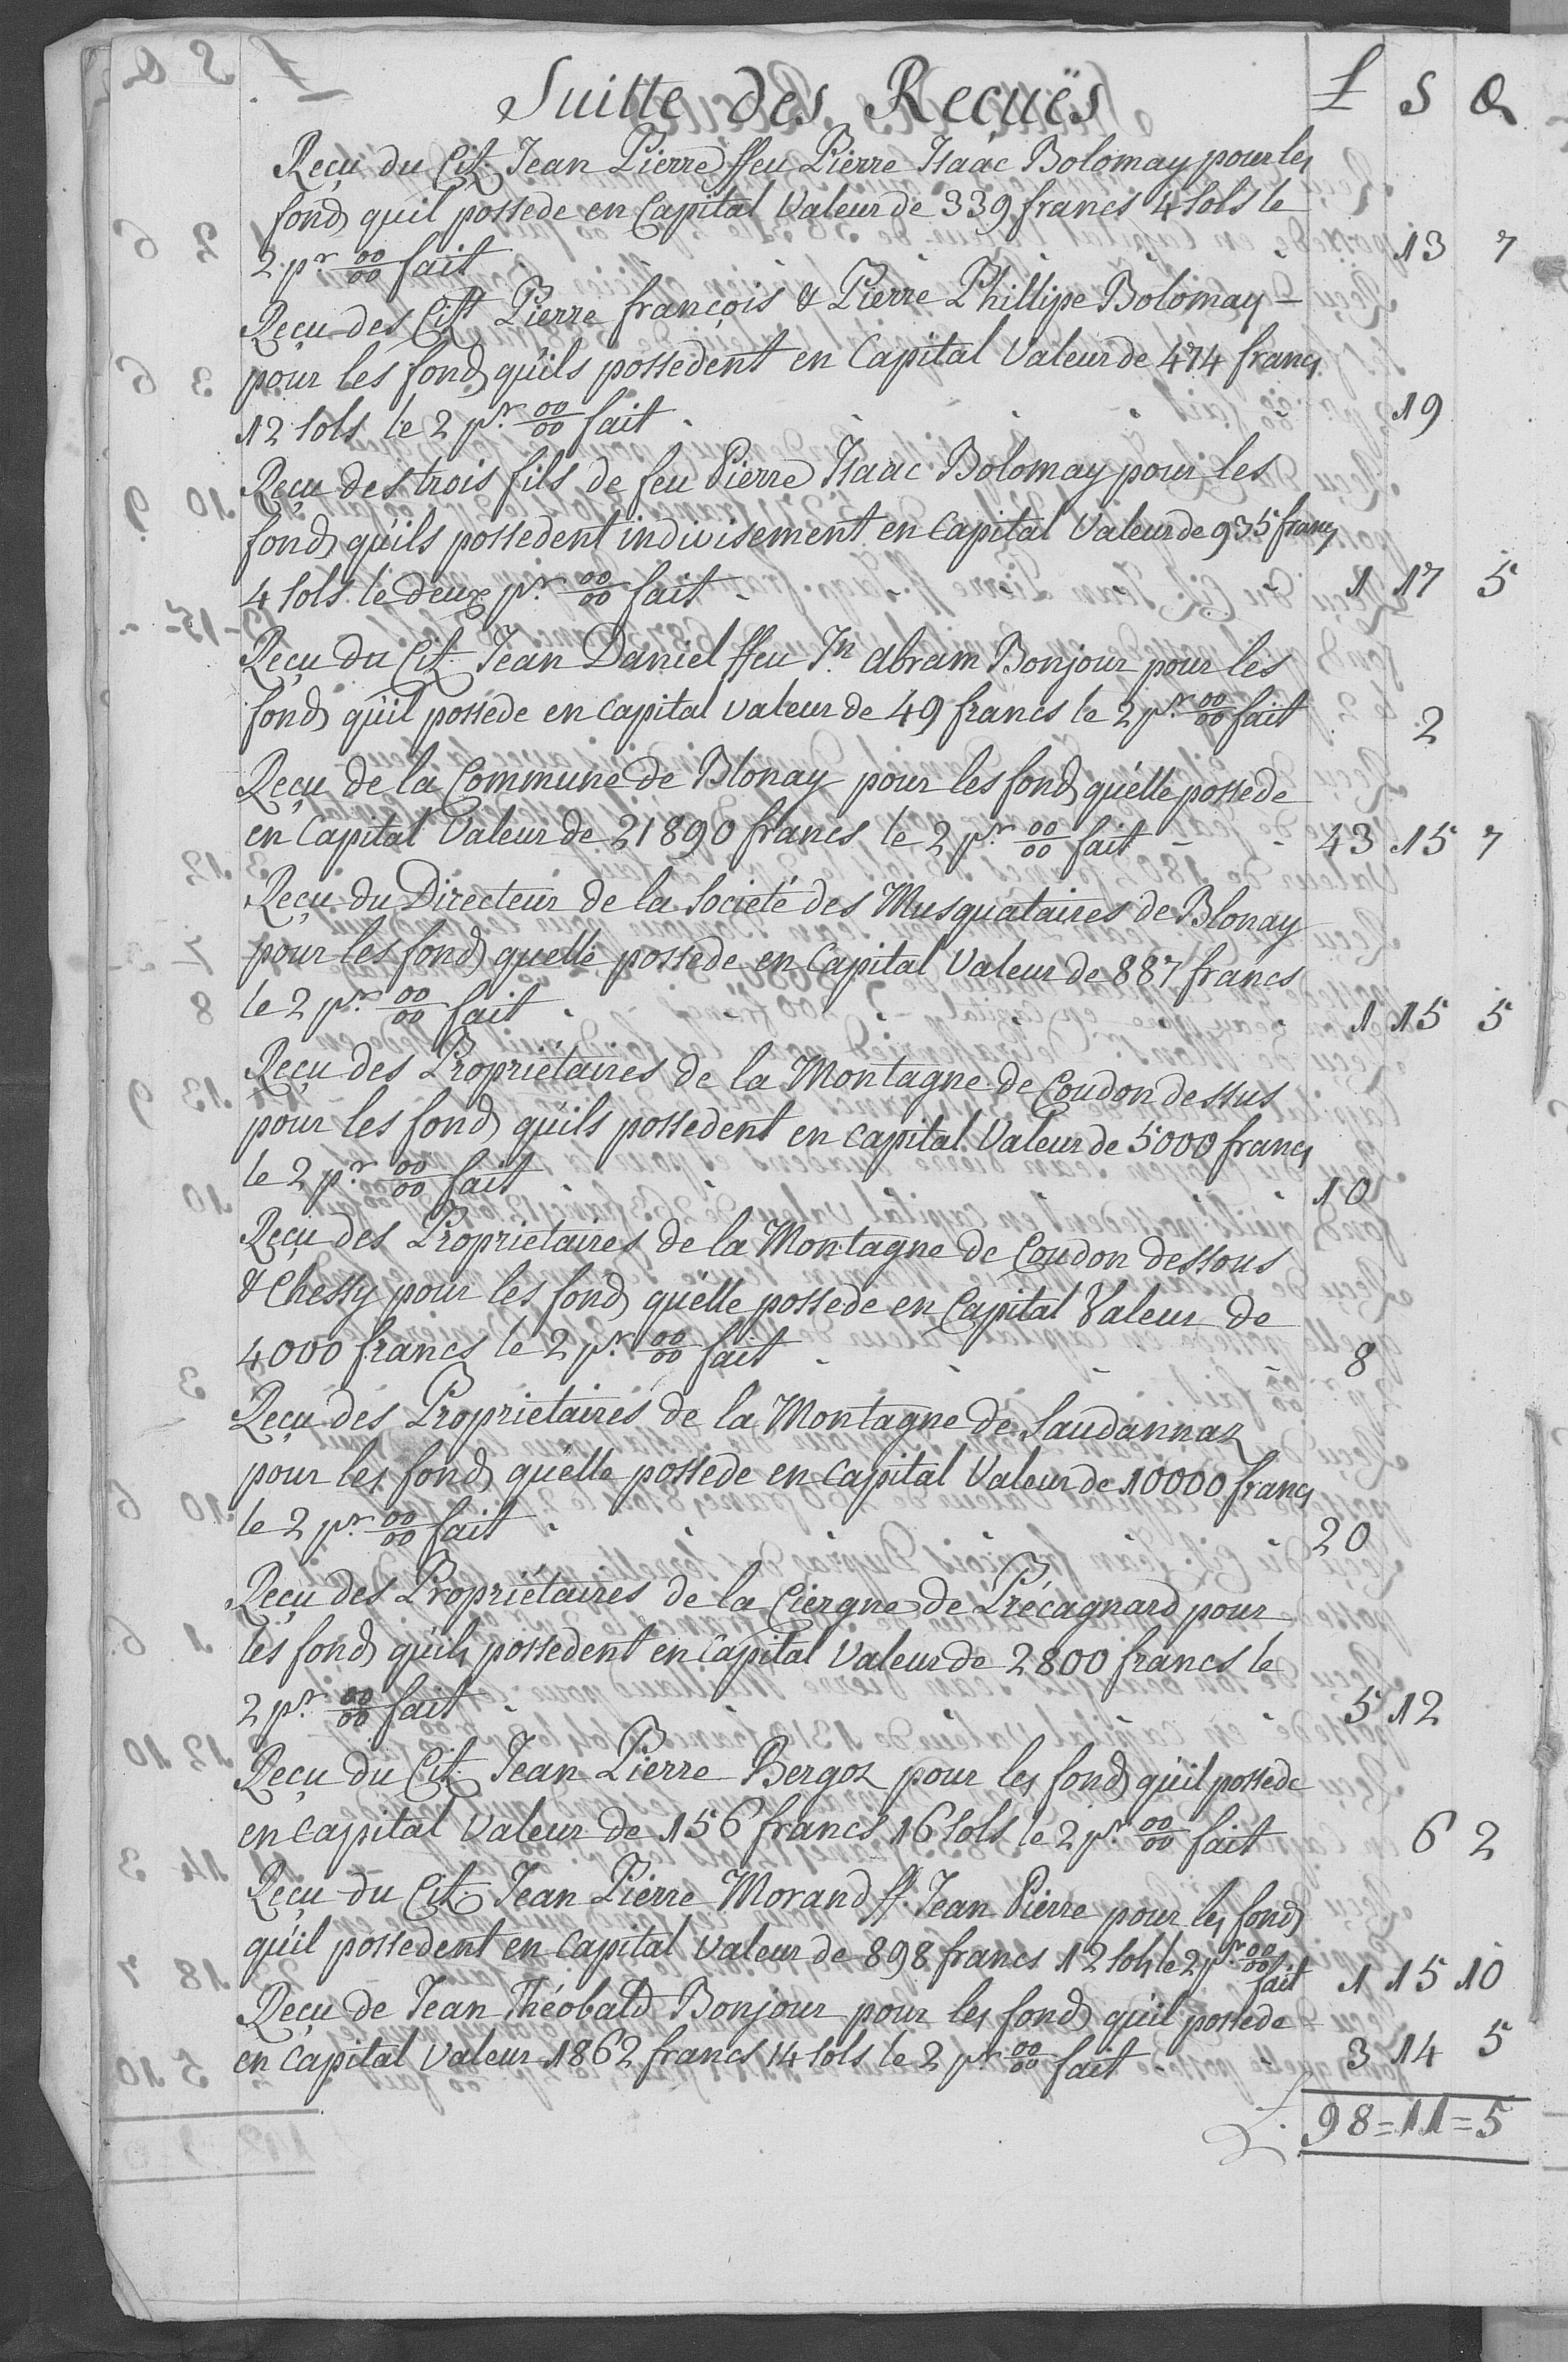 Suitte des Reçuës £ S Q
Reçu du Cit. Jean Pierre ffeu Pierre Isaac Bolomay pour les
fonds quil possede en Capital Valeur de 339 francs 4 sols le
2 pr 00/00 fait 13 7
Reçu des Citt Pierre françois & Pierre Phillipe Bolomay -
pour les fonds qu'ils possedent en Capital Valeur de 474 francs
12 sols le 2 pr. 00/00 fait 19
Reçu des trois fils de feu Pierre Isaac Bolomay pour les
fonds qu'ils possedent indivisement en Capital Valeur de 935 francs
4 sols le deux pr. 00/00 fait 1 17 5
Reçu du Cit. Jean Daniel ffeu Jn abram Bonjour pour les
fonds qu'il possede en Capital valeur de 49 francs le 2 pr. 00/00 fait 2
Reçu de la Commune de Blonay pour les fonds qu'elle possede
en Capital Valeur de 21890 francs le 2 pr. 00/00 fait 43 15 7
Reçu du Directeur de la Societé des Musquataires de Blonay
pour les fonds quelle possede en Capital Valeur de 887 francs
le 2 pr. 00/00 fait 1 15 5
Reçu des Propriétaires de la Montagne de Coudon dessus
pour les fonds qu'ils possedent en Capital Valeur de 5000 francs
le 2 pr. 00/00 fait 10
Reçu des Propriétaires de la Montagne de Coudon dessous
& Chessy pour les fonds qu'elle possede en Capital Valeur de
4000 francs le 2 pr. 00/00 fait 8
Reçu des Propriétaires de la Montagne de Saudannaz
pour les fonds qu'elle possede en Capital Valeur de 10000 francs
le 2 pr. 00/00 fait 20
Reçu des Propriétaires de la Ciergne de Précagnard pour
les fonds qu'ils possedent en Capital Valeur de 2800 francs le
2 pr. 00/00 fait 5 12
Reçu du Cit. Jean Pierre Bergoz pour les fonds qu'il possede
en Capital Valeur de 156 francs 16 sols le 2 pr. 00/00 fait 6 2
Reçu du Cit. Jean Pierre Morand ff. Jean Pierre pour les fonds
qu'il possedent en Capital Valeur de 898 francs 12 sols le 2 pr 00/00 fait 1 15 10
Reçu de Jean Théobald Bonjour pour les fonds qu'il possede
en Capital Valeur 1862 francs 14 sols le 2 pr 00/00 fait 3 14 5
£. 98=11=5